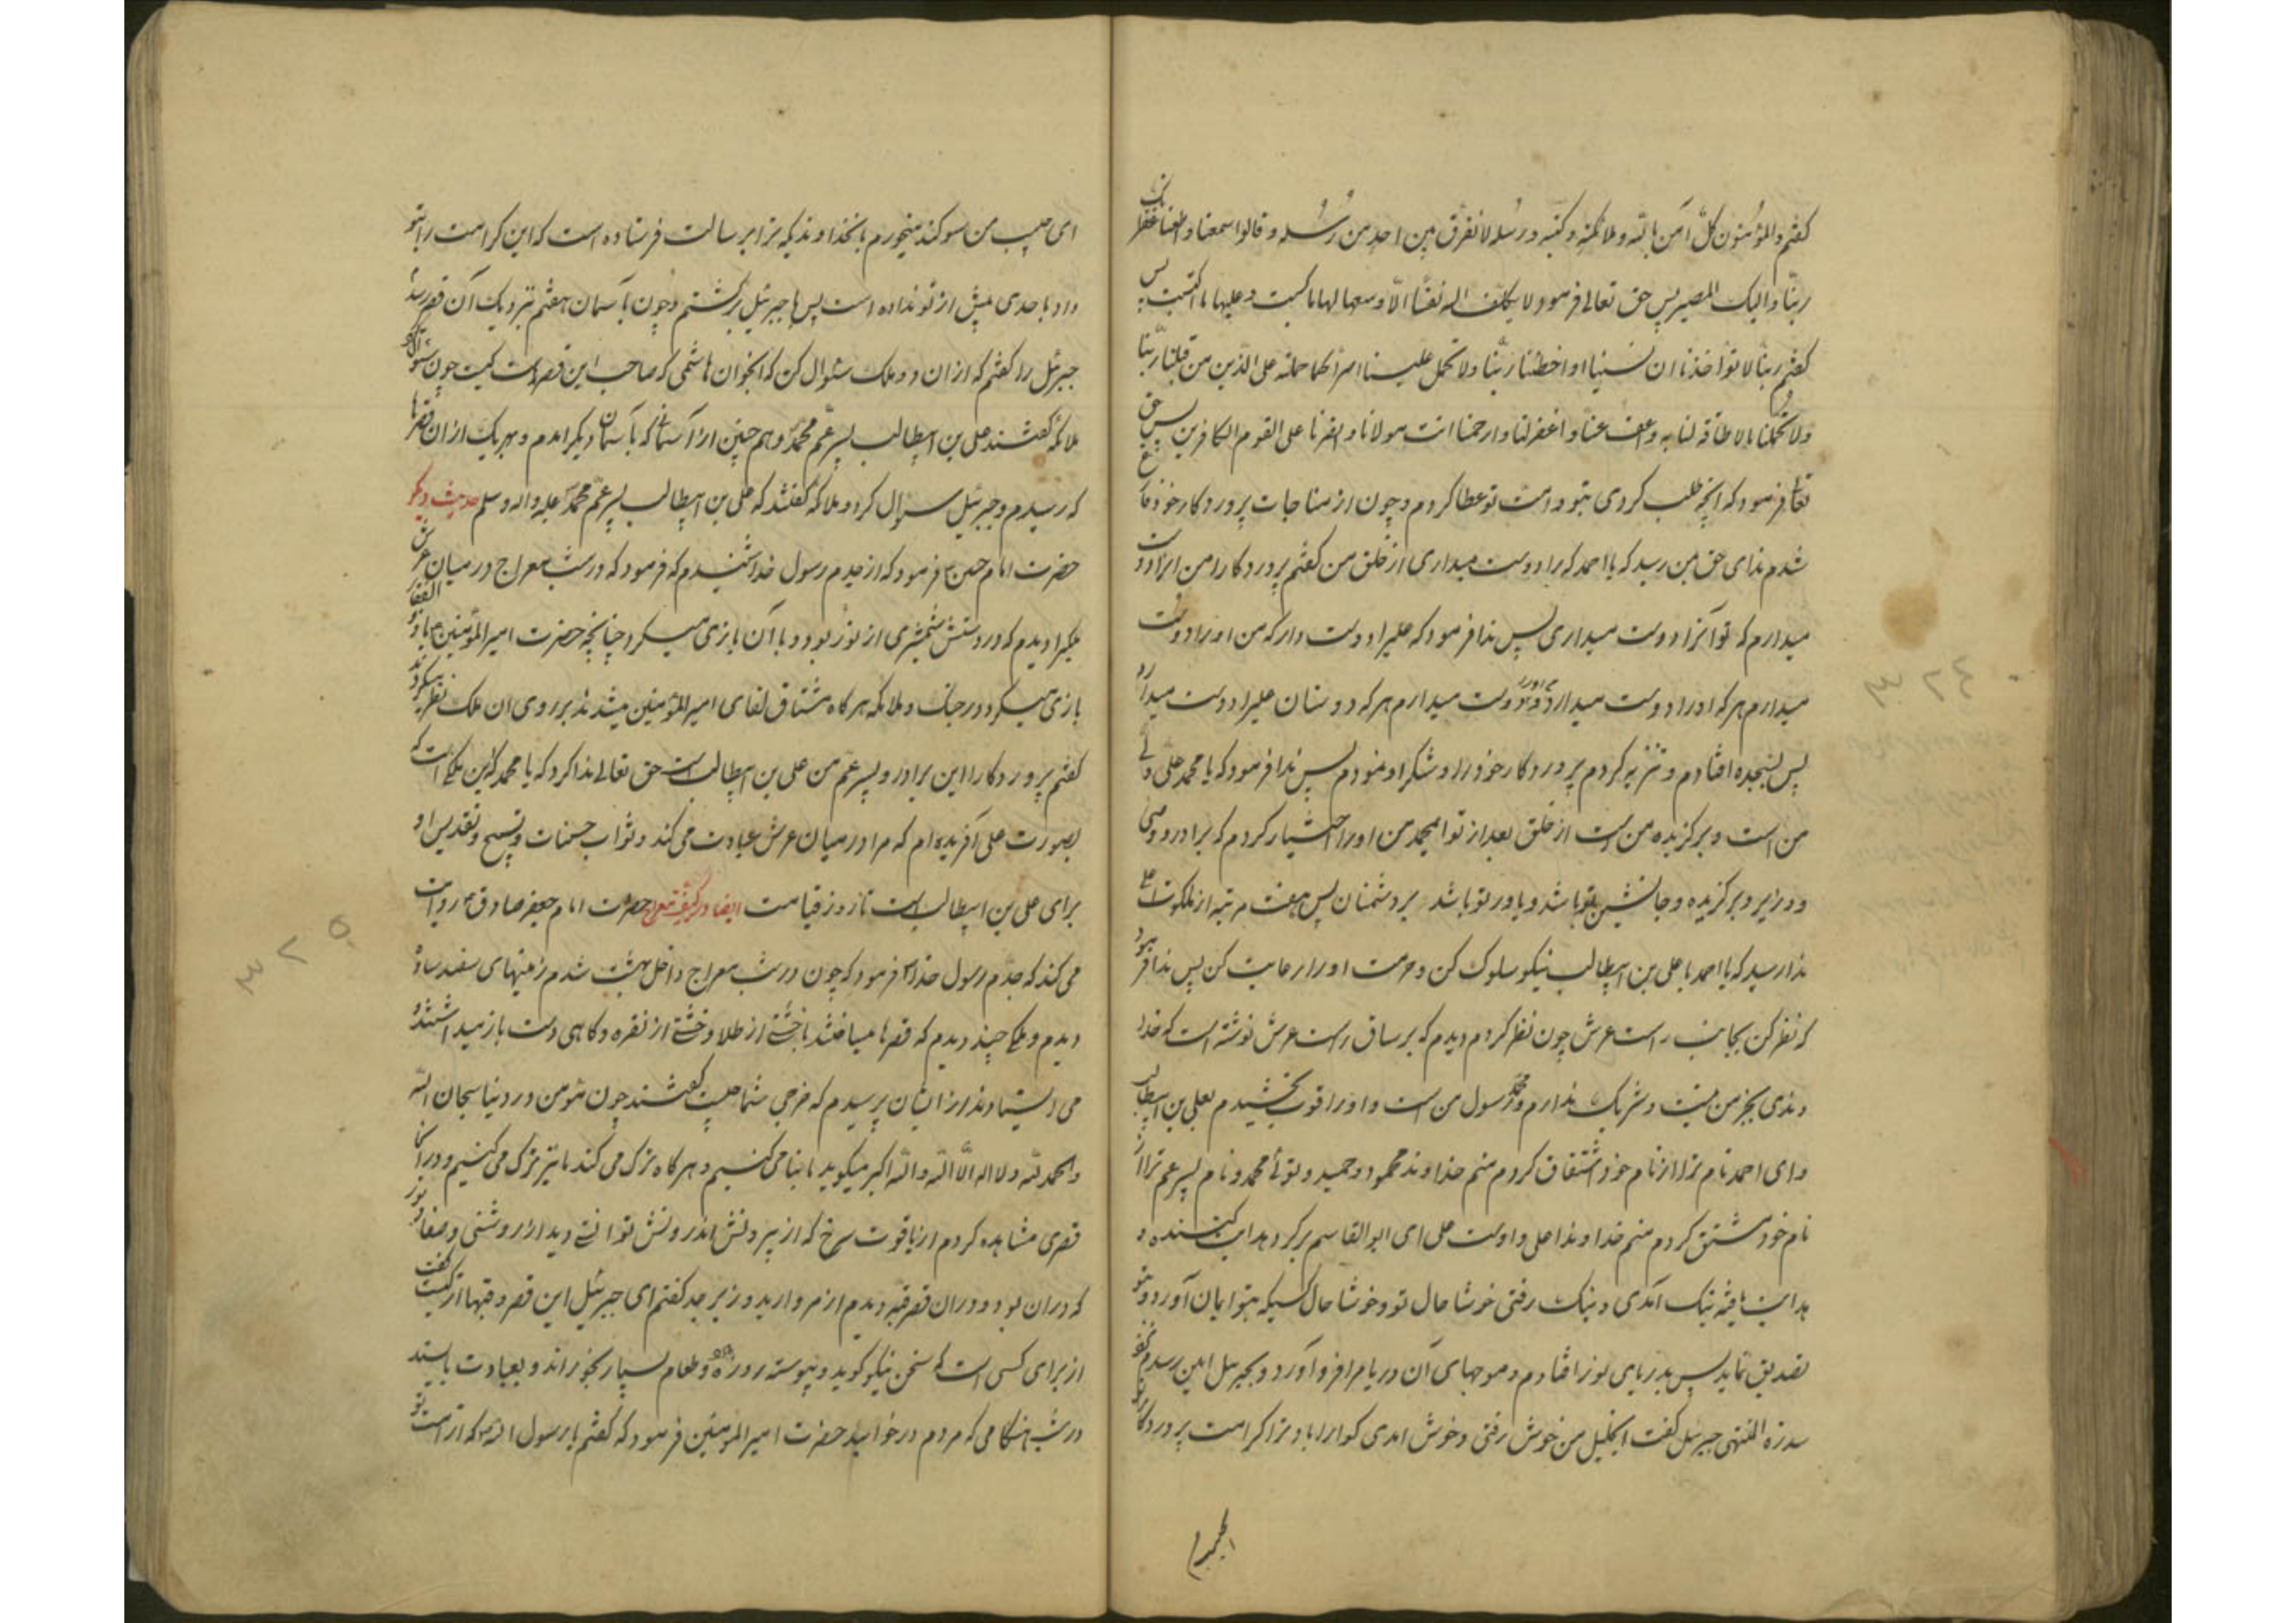 کفتم والمؤمنون کلّ آمن بالله وملائکته وکتبه ورسله لا نفرّق بین احد من رسله وقالوا سمعنا واطعنا غفرانک
ربّنا والیک المصیر پس حق تعالی فرمود ولا یکلف الله نفسًا الّا وسعها لها ما کسبت وعلیها ما اکتسبت پس
کفتم ربنا لا تؤاخذنا ان نسینا او اخطئنا ربّنا ولا تحمل علینا اصرا کما حملته علی الذین من قبلنا ربّنا
ولا تحملنا ما لا طاقة لنا به واعف عنّا واغفر لنا وارحمنا انت مولانا وانصرنا علی القوم الکافرین پس حق
تعالی فرمود که انچه طلب کردی بتو وامت تو عطا کردم وچون از مناجات پروردکار خود فارغ
شدم ندای حق بمن رسید که یا احمد که را دوست میداری از خلق من کفتم پروردکارا من انرا دوست
میدارم که تو آنرا دوست میداری پس ندا فرمود که علیرا دوست دار که من او را دوست
میدارم هر که او را دوست میدارد ودوست میدارم هر که دوستان علیرا دوست میدارد
پس بسجده افتادم وتنزیه کردم پروردکار خود را وشکر او نمودم پس ندا فرمود که یا محمد علی ولی
من است وبرکزیده من است از خلق بعد از تو ایمحمد من او را اختیار کردم که برادر ووصی
ووزیر وبرکزیده وجانشین تو باشد ویاور تو باشد بر دشمنان پس هفت مرتبه از ملکوت اعلی
ندا رسید که یا احمد با علی بن ابیطالب نیکو سلوک کن وحرمت او را رعایت کن پس ندا فرمود
که نظر کن بجانب راست عرش چون نظر کردم دیدم که بر ساق راست عرش نوشته است که خدا
وندی بجز من نیست وشریک ندارم ومحمد رسول من است واو را قوت بخشیدم بعلی بن ابیطالب
وای احمد نام ترا از نام خود اشتقاق کردم منم خداوند محمود وحمید وتوئی محمد ونام پسر عم ترا از
نام خود مشتق کردم منم خداوند اعلی واوست علی ای ابو القاسم برکرد هدایت کننده و
هدایت یافته نیک آمدی ونیک رفتی خوشا حال تو وخوشا حال کسیکه بتو ایمان آورد وبتو
تصدیق نماید پس بدریای نور افتادم وموجهای آن دریا مرا فرو آورد وبجبرئیل امین رسیدم نزد
سدرة المنتهی جبرئیل کفت ایخلیل من خوش رفتی وخوش امدی کوارا باد ترا کرامت پروردکار تو
ای حبیب من سوکند میخورم بانخداوندیکه ترا برسالت فرستاده است که این کرامت را بتو
داد باحدی پیش از تو نداده است پس با جبرئیل برکشتم وچون بآسمان هفتم نزدیک آن قصر رسیدم
جبرئیل را کفتم که از ان دو ملک سئوال کن که انجوان هاشمی که صاحب این قصر است کیست چون سئوال کرد
ملائکه کفتند علی بن ابیطالب پسر عم محمد وهم چنین از آسمانی که بآسمان دیکر امدم وبهر یک از ان قصرها
که رسیدم وجبرئیل سؤال کرد وملائکه کفتند که علی بن ابیطالب پسر عمّ محمد علیه واله وسلم حدیث دیکر
حضرت امام حسین فرمود که از جدم رسول خدا شنیدم که فرمود که در شب معراج در میان عرش
ملکیرا دیدم که در دستش شمشیری از نور بود وبا آن بازی میکرد چنانچه حضرت امیر المؤمنین با ذو الفقار
بازی میکرد در جنک وملائکه هر کاه مشتاق لقای امیر المؤمنین میشدند بر روی ان ملک نظر میکردند
کفتم پروردکارا این برادر وپسر عم من علی بن ابیطالب است حق تعالی ندا کرد که یا محمد که این ملکی است که
بصورت علی آفریده ام که مرا در میان عرش عبادت می کند وثواب حسنات وتسبیح وتقدیس او
برای علی بن ابیطالب است تا روز قیامت ایضا در کیفیت معراج حضرت امام جعفر صادق روایت
می کند که جدّم رسول خدا فرمود که چون در شب معراج داخل بهشت شدم زمینهای سفید ساده
دیدم وملکی چند دیدم که قصرها میساختند با خشتی از طلا وخشتی از نقره وکاهی دست باز میداشتند و
می ایستادند از ایشان پرسیدم که خرجی شما چیست کفتند چون مؤمن در دنیا سبحان الله
والحمد لله ولا اله الّا الله والله اکبر میکوید ما بنا می کنیم وهر کاه ترک می کند ما نیز ترک می کنیم ودر آنجا
قصری مشاهده کردم از یاقوت سرخ که از بیرونش اندرونش توانستی دید از روشنی وصفا ونور
که در ان بود ودر ان قصر قبه دیدم از مروارید وزبرجد کفتم ای جبرئیل این قصر وقبها از کیست کفت
از برای کسی است که سخن نیکو کوید وپیوسته روزه وطعام بسیار بخوراند وبعبادت بایستد
در شب هنکامی که مردم در خوابند حضرت امیر المؤمنین فرمود که کفتم یا رسول الله که از امت تو
۳۲۴
۳۲۵